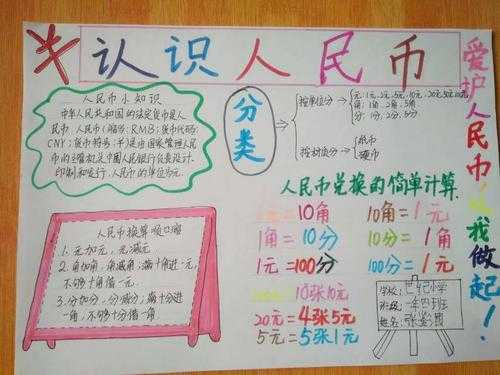 认识人民币
爱护人民币从我做起!
人民币小知识
中华人民共和国的法定货币是人
民币,人民币(缩写:RMB;货币代码:
CNY;货币符号:¥)是由国家管理人民
币的主管机及中国人民银行负责设计、
印制和发行,人民币的单位为元.
分类
按单位分→
元:1元,2元,5元,10元,20元,50元,100元
角:1角,2角,5角
分:1分,2分,5分
按材质分→
纸币
硬币
人民币兑换的简单计算
1元=10角 10角=1元
1角=10分 10分=1角
1元=100分 100分=1元
10张10元
20元=4张5元
5元=5张1元
人民币换算顺口溜
1.元加元,元减元
2.角加角,角减角;满十角进一元,
不够十角借一元.
3.分加分,分减分;满十分进
一角,不够十分借一角
学校:巴纪小学
班级:一年四班
姓名:张